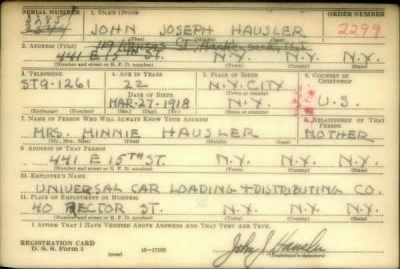 SERIAL NUMBER 1. NAME (Print) ORDER NUMBER
JOHN JOSEPH HAUSLER 2299
2. ADDRESS (Print)
441 E 15TH ST. N.Y. N.Y.
(Number and street or R. F. D. number) (Town) (County) (State)
3. TELEPHONE 4. AGE IN YEARS 5. PLACE OF BIRTH 6. COUNTRY OF CITIZENSHIP
ST9-1261 22 N.Y. CITY
DATE OF BIRTH (Town or county) U.S.
MAR-27-1918 N.Y.
(Exchange) (Number) (Mo.) (Day) (Yr.) (State or country)
7. NAME OF PERSON WHO WILL ALWAYS KNOW YOUR ADDRESS 8. RELATIONSHIP OF THAT PERSON
MRS. MINNIE HAUSLER MOTHER
(Mr., Mrs., Miss) (First) (Middle) (Last)
9. ADDRESS OF THAT PERSON
441 E 15TH ST. N.Y. N.Y.
(Number and street or R. F. D. number) (Town) (County) (State)
10. EMPLOYER'S NAME
UNIVERSAL CAR LOADING + DISTRIBUTING CO.
11. PLACE OF EMPLOYMENT OR BUSINESS
40 RECTOR ST. N.Y. N.Y.
(Number and street or R. F. D. number) (Town) (County) (State)
I AFFIRM THAT I HAVE VERIFIED ABOVE ANSWERS AND THAT THEY ARE TRUE.
REGISTRATION CARD
D. S. S. Form 1 (over) John J Hausler
(Registrant's signature)